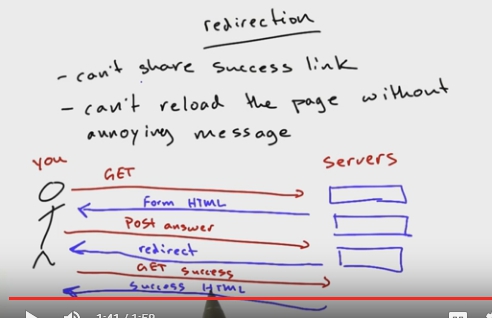 redirection
- can't share success link
- can't reload the page without
annoying message
you
servers
GET
Form HTML
Post answer
redirect
GET success
success HTML
1:41 / 1:58
CC